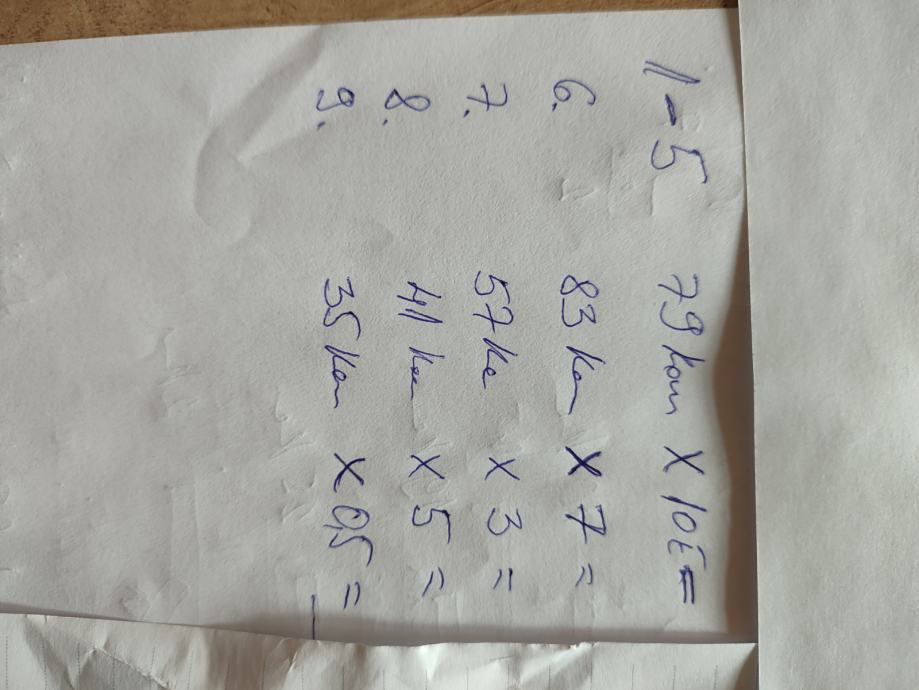 1-5 79 kom X 10E=
6. 83 kom X 7 =
7. 57 ko X 3 =
8. 41 kom X 5 =
9. 35 kom X 0,5 =